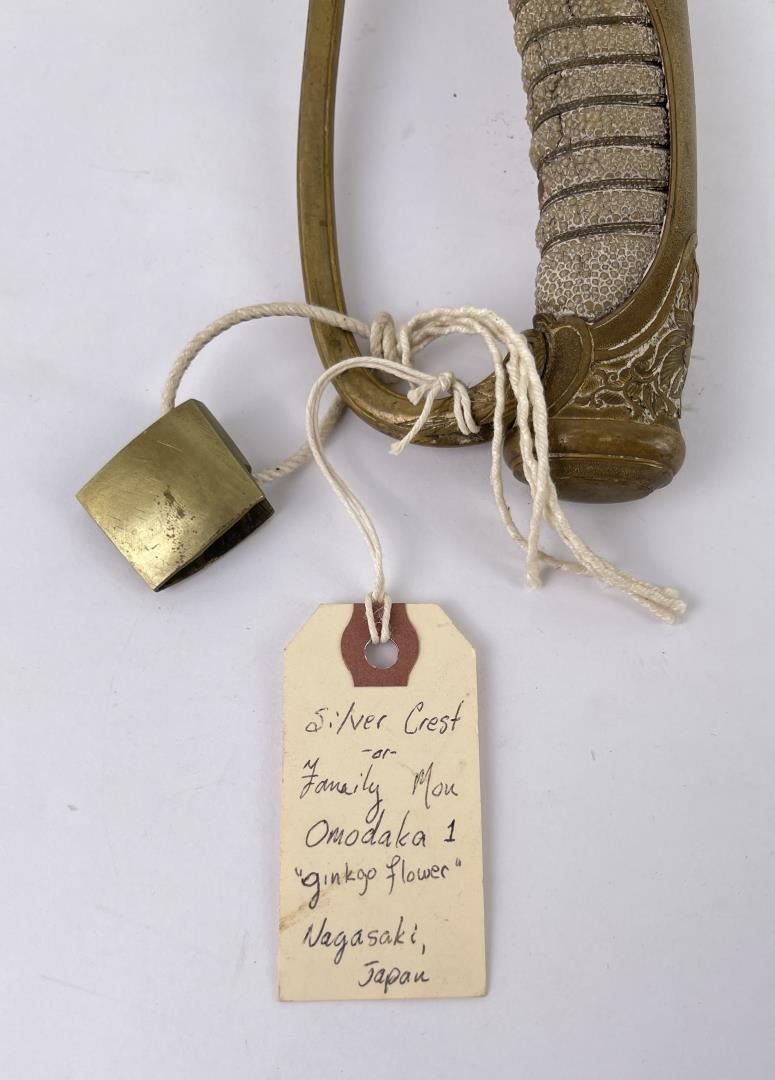 Silver Crest
-or-
Family Mon
Omodaka 1
"ginkgo flower"
Nagasaki,
Japan